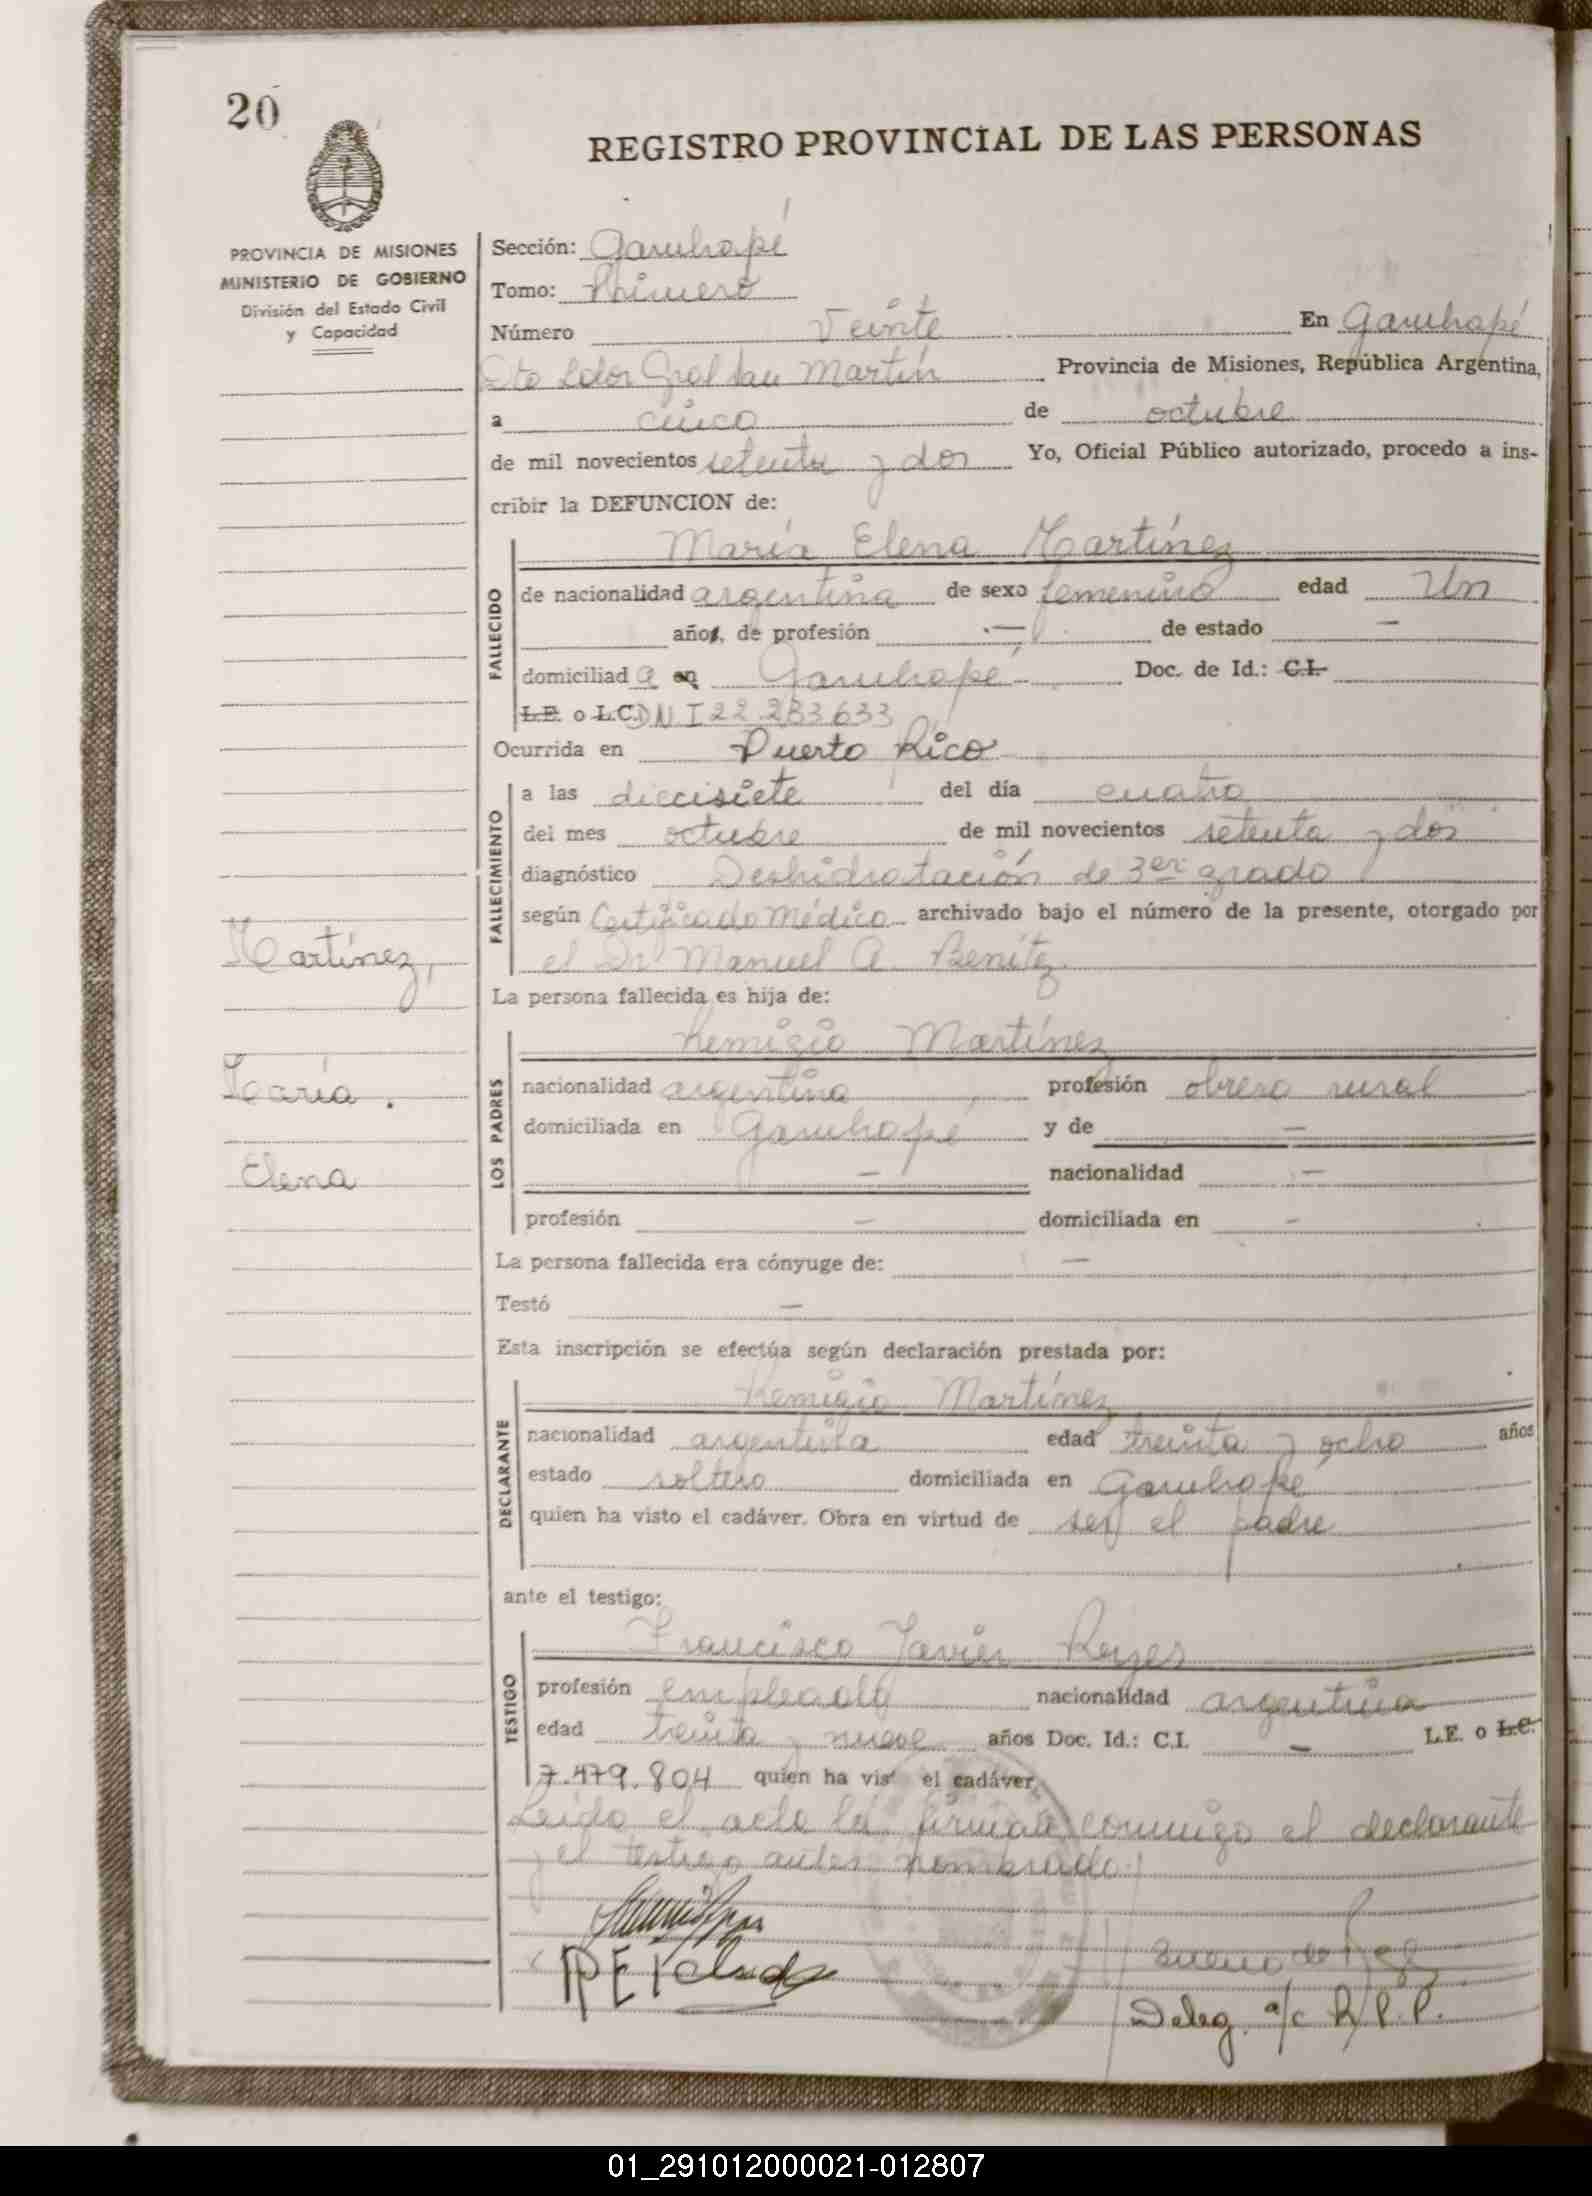 20
REGISTRO PROVINCIAL DE LAS PERSONAS
PROVINCIA DE MISIONES
MINISTERIO DE GOBIERNO
División del Estado Civil
y Capacidad
Sección: Garuhapé
Tomo: Primero
Número Veinte En Garuhapé
Dto Ldor Gral San Martín Provincia de Misiones, República Argentina,
a cinco de octubre
de mil novecientos setenta y dos Yo, Oficial Público autorizado, procedo a ins-
cribir la DEFUNCION de:
María Elena Martínez
FALLECIDO
de nacionalidad argentina de sexo femenino edad Un
año, de profesión — de estado —
domiciliada en Garuhapé Doc. de Id.: C.I.
L.E. o L.C. DNI 22.233.633
Ocurrida en Puerto Rico
FALLECIMIENTO
a las diecisiete del día cuatro
del mes octubre de mil novecientos setenta y dos
diagnóstico Deshidratación de 3er grado
según Certificado Médico archivado bajo el número de la presente, otorgado por
el Dr Manuel A. Benítez
Martínez,
María.
Elena
La persona fallecida es hija de:
LOS PADRES
Remigio Martínez
nacionalidad argentina profesión obrero rural
domiciliada en Garuhapé y de —
— nacionalidad —
profesión — domiciliada en —
La persona fallecida era cónyuge de: —
Testó —
Esta inscripción se efectúa según declaración prestada por:
DECLARANTE
Remigio Martínez
nacionalidad argentina edad treinta y ocho años
estado soltero domiciliada en Garuhapé
quien ha visto el cadáver. Obra en virtud de ser el padre
ante el testigo:
TESTIGO
Francisco Javier Reyes
profesión empleado nacionalidad argentina
edad treinta y nueve años Doc. Id.: C.I. — L.E. o L.C.
7.479.804 quien ha vis el cadáver
Leído el acta la firman conmigo el declarante
y el testigo antes nombrado.
Deleg. a/c R.P.P.
01_291012000021-012807